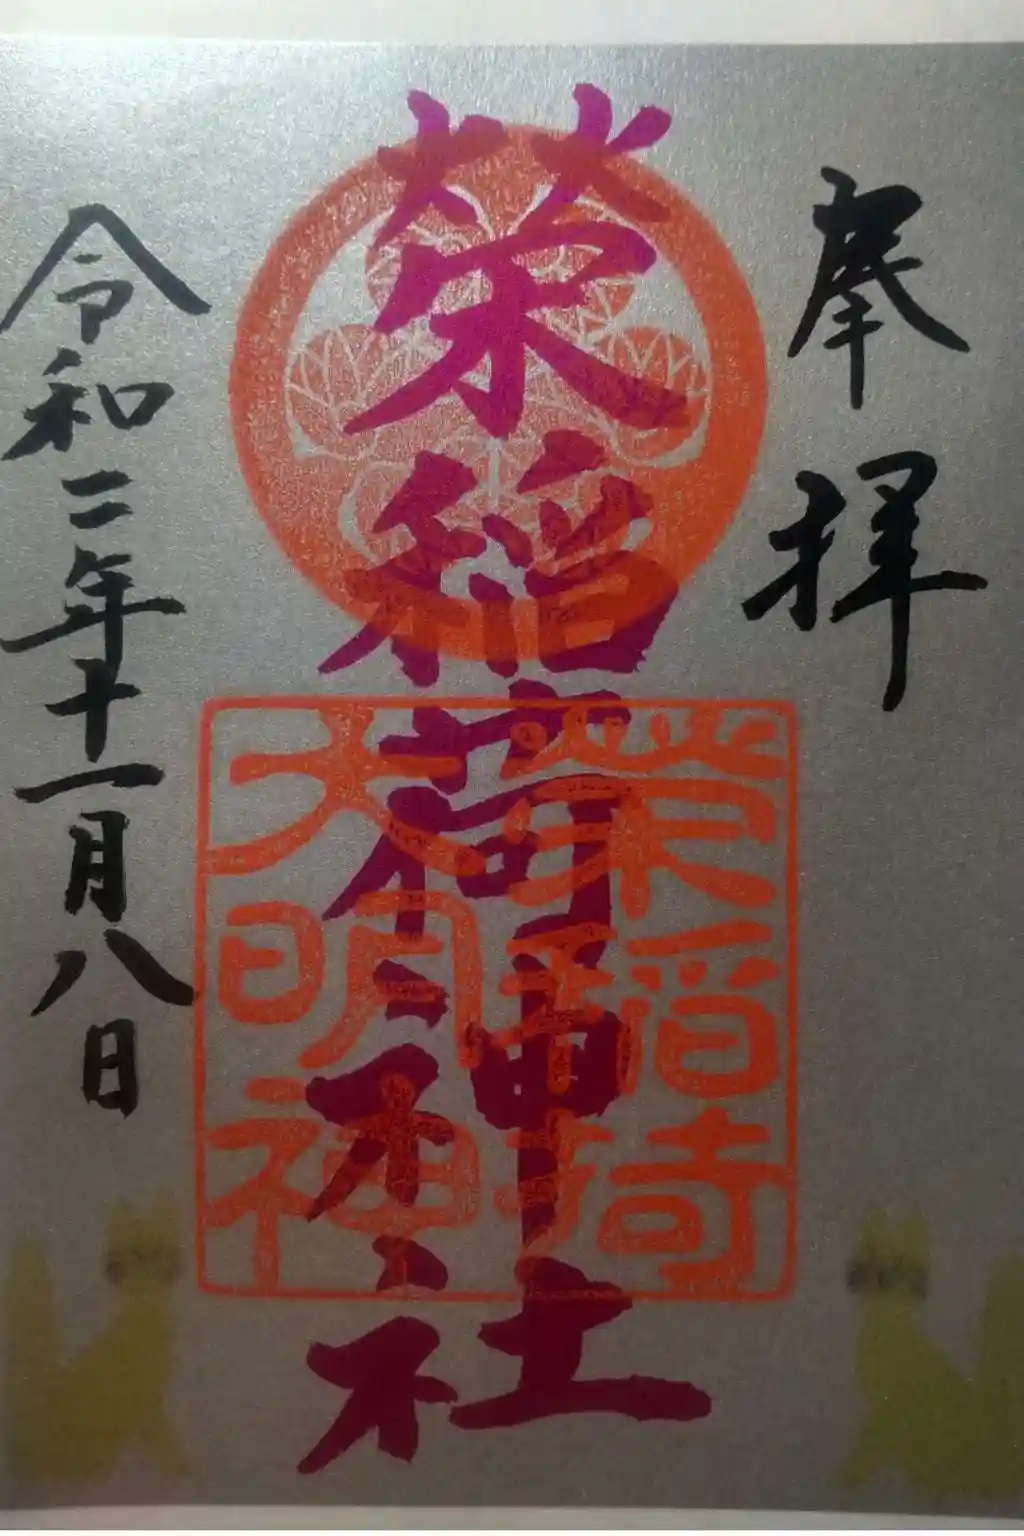 奉拝
榮稲荷神社
榮稻荷
大明神
令和二年十一月八日